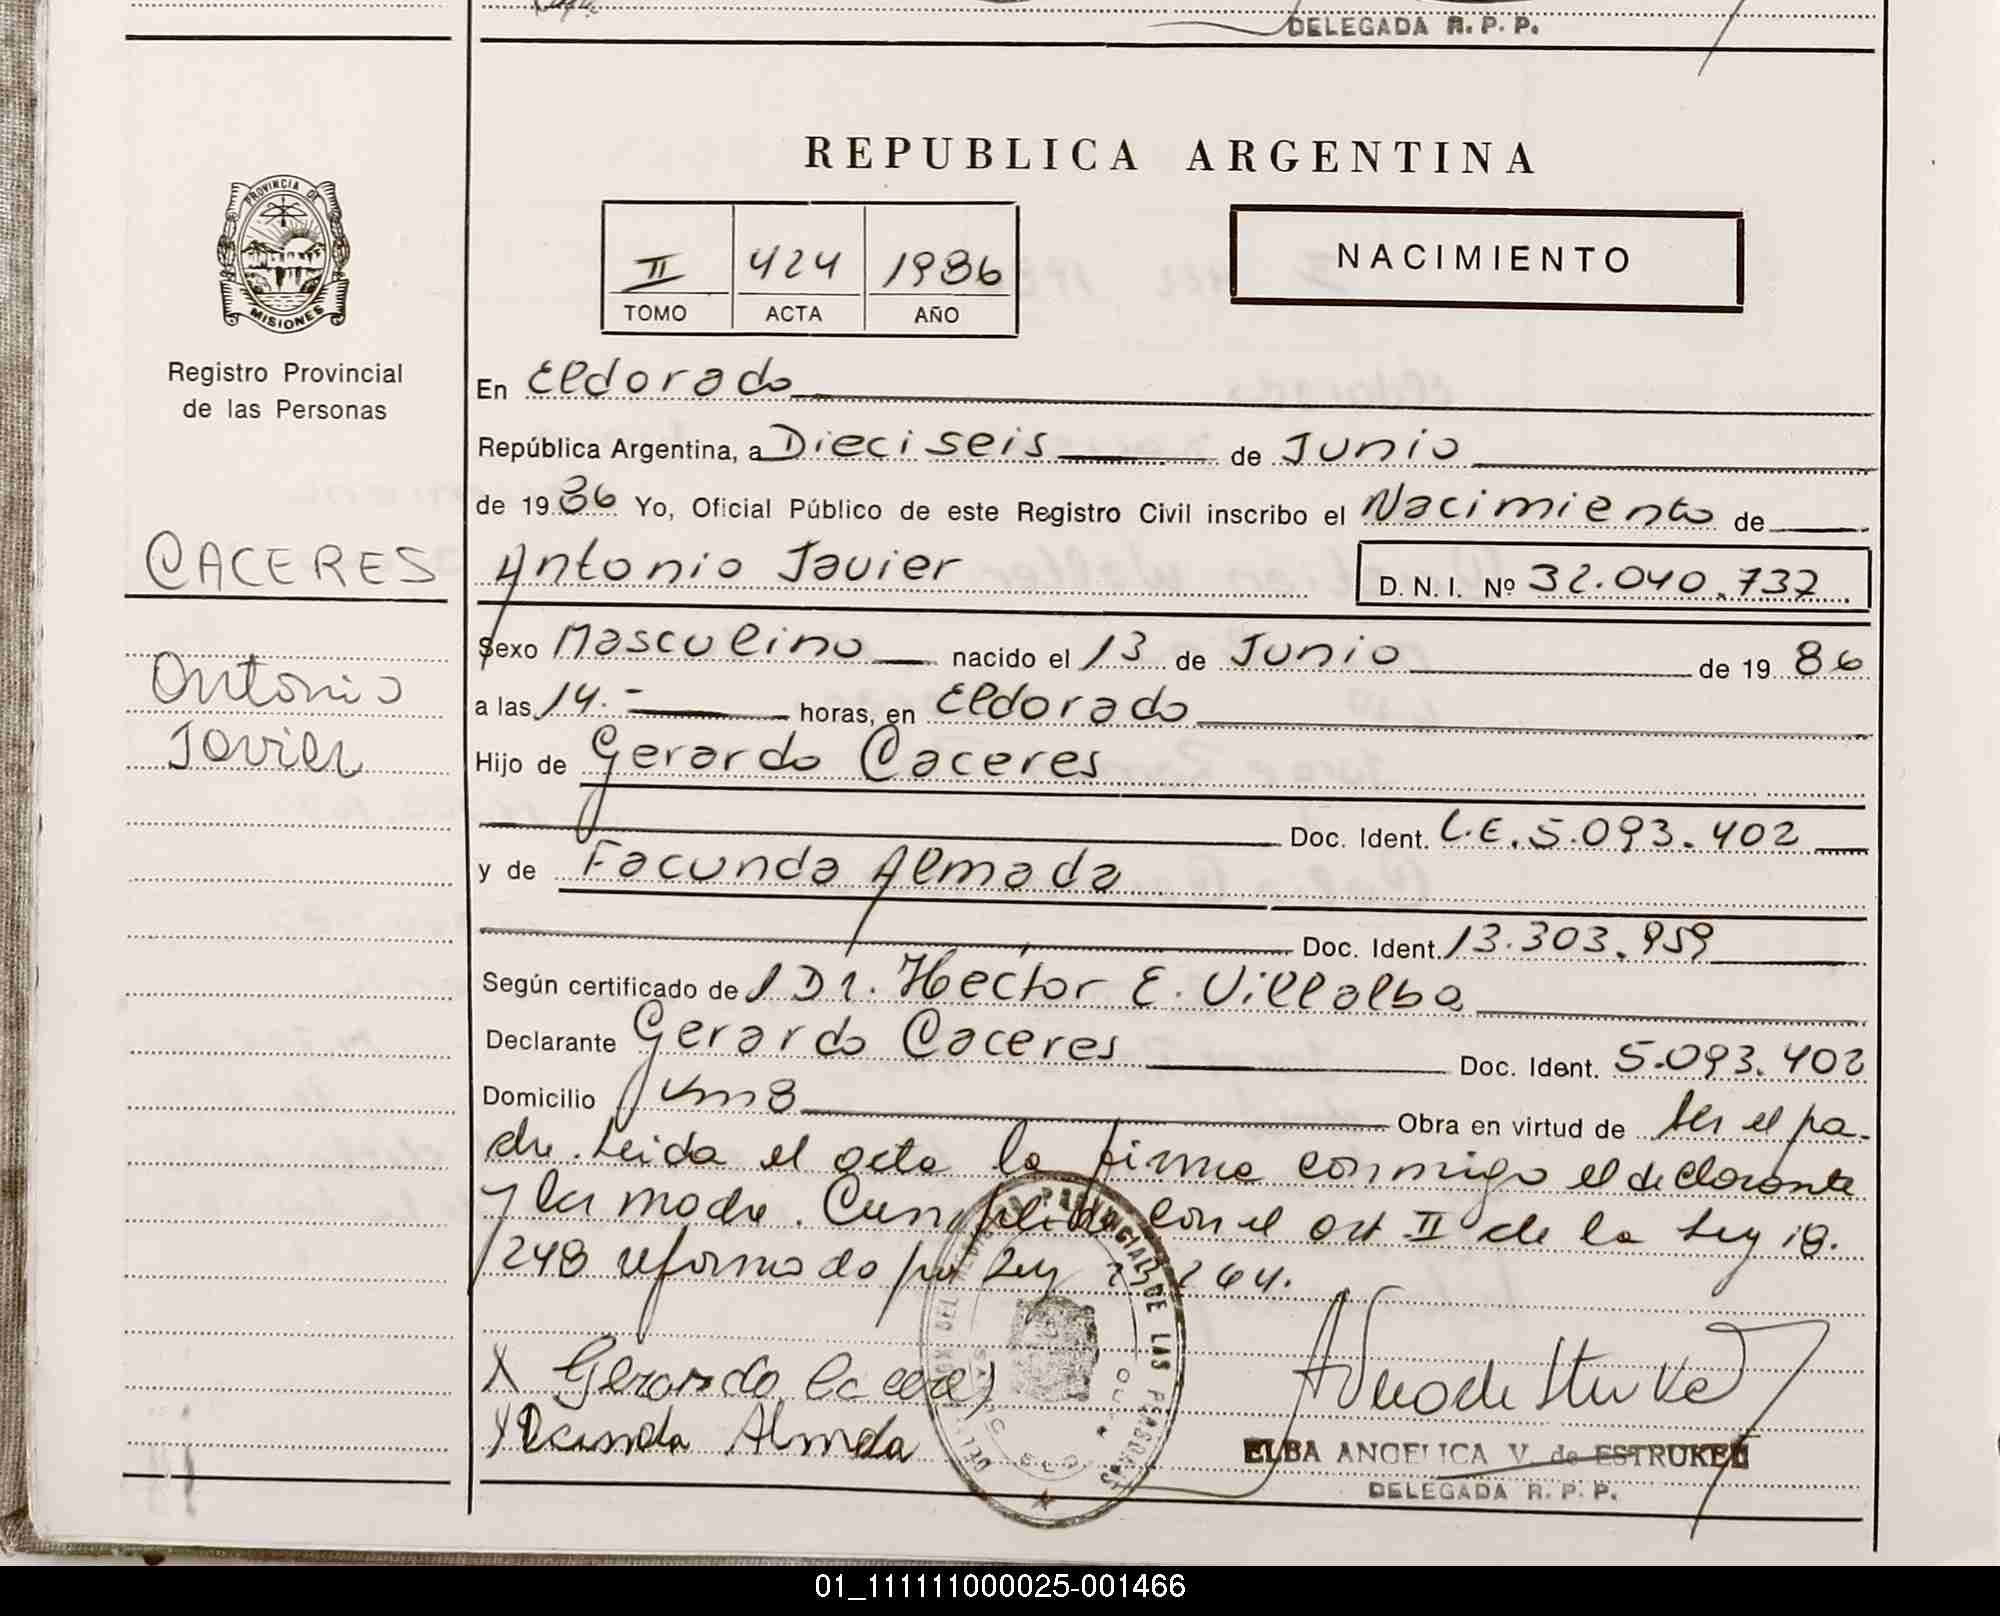 DELEGADA R. P. P.
REPUBLICA ARGENTINA
PROVINCIA DE
MISIONES
Registro Provincial
de las Personas
II 424 1986
TOMO ACTA AÑO
NACIMIENTO
En Eldorado
República Argentina, a Dieciseis de Junio
de 1986 Yo, Oficial Público de este Registro Civil inscribo el Nacimiento de
CACERES
Antonio Javier
Antonio Javier D. N. I. Nº 32.040.737
Sexo Masculino nacido el 13 de Junio de 1986
a las 14.- horas, en Eldorado
Hijo de Gerardo Caceres
Doc. Ident. L.E. 5.093.402
y de Facunda Almada
Doc. Ident. 13.303.959
Según certificado de l Dr. Hector E. Villalba
Declarante Gerardo Caceres Doc. Ident. 5.093.402
Domicilio Km 8 Obra en virtud de ser el pa-
dre. Leida el acta la firma conmigo el declarante
y la madre. Cumplido con el art II de la Ley 18.
248 reformado por Ley 23264.
X Gerardo Caceres
X Facunda Almada
PROVINCIAL DE LAS PERSONAS
ELBA ANGELICA V. de ESTRUKEL
DELEGADA R. P. P.
01_111111000025-001466